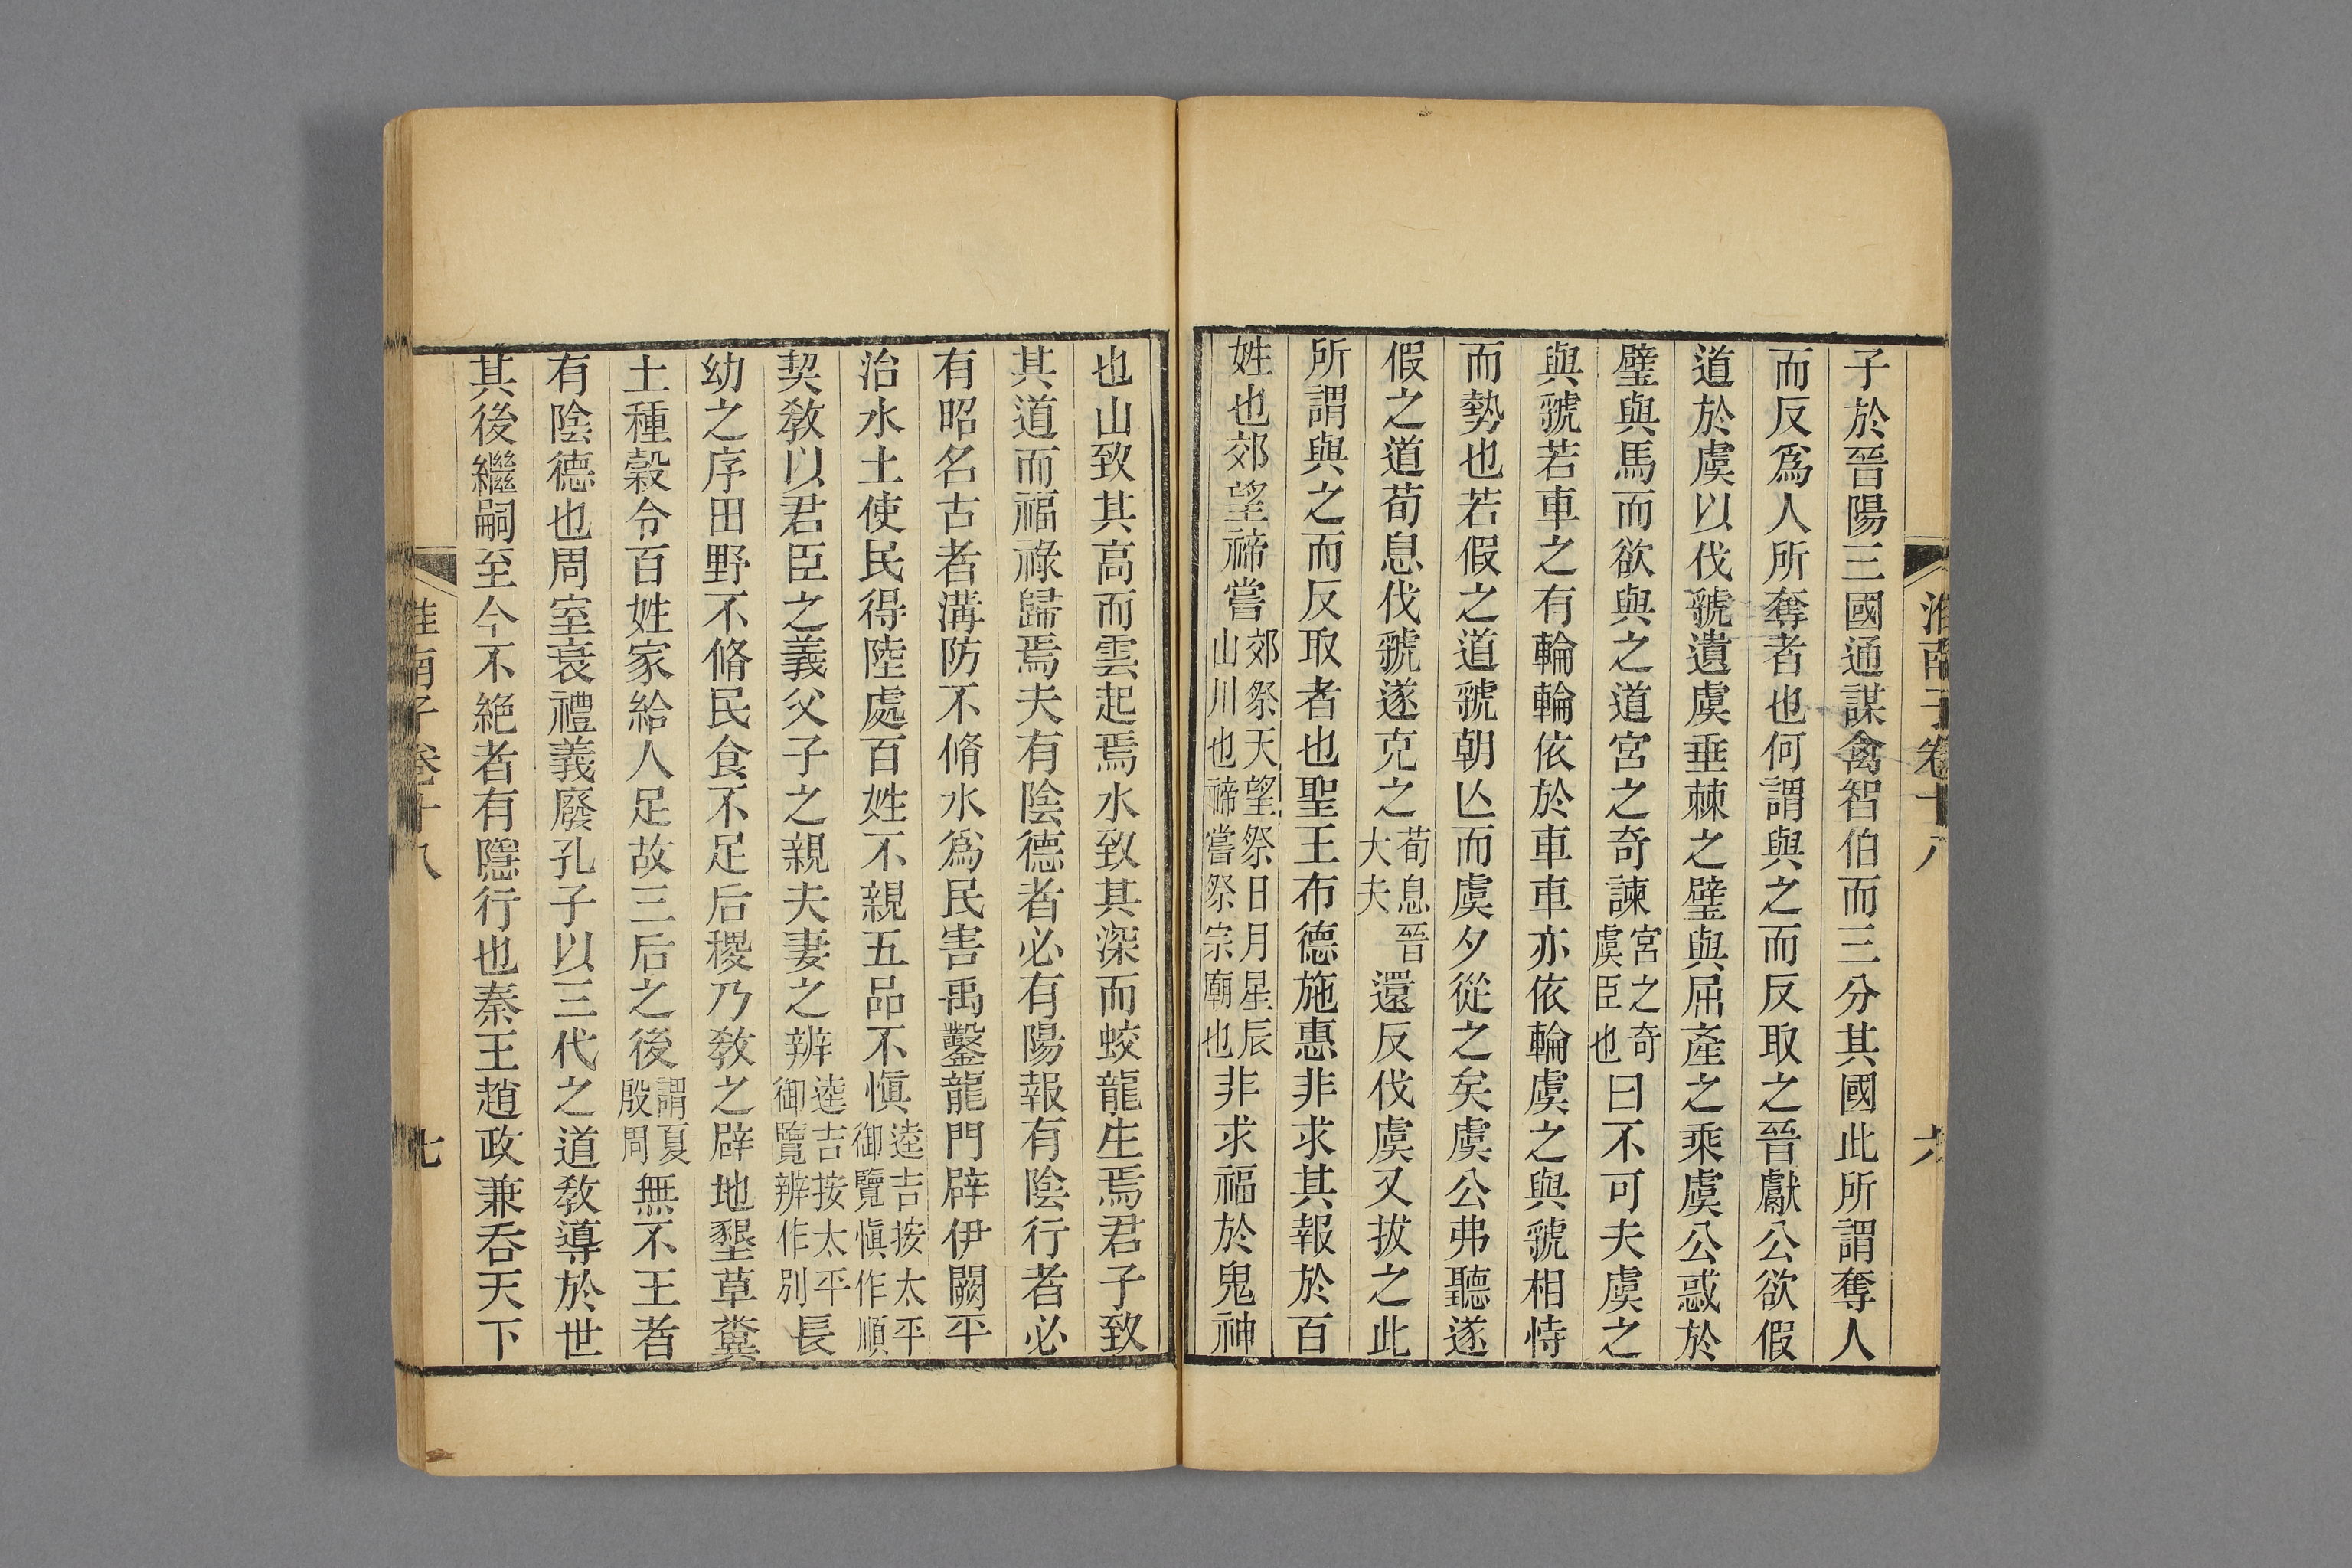 淮南子卷十八 六
子於晉陽三國通謀禽智伯而三分其國此所謂奪人
而反爲人所奪者也何謂與之而反取之晉獻公欲假
道於虞以伐虢遺虞垂棘之璧與屈產之乘虞公惑於
璧與馬而欲與之道宮之奇諫宮之奇虞臣也曰不可夫虞之
與虢若車之有輪輪依於車車亦依輪虞之與虢相恃
而勢也若假之道虢朝亾而虞夕從之矣虞公弗聽遂
假之道荀息伐虢遂克之荀息晉大夫還反伐虞又拔之此
所謂與之而反取者也聖王布德施惠非求其報於百
姓也郊望禘嘗郊祭天望祭日月星辰山川也禘嘗祭宗廟也非求福於鬼神
也山致其高而雲起焉水致其深而蛟龍生焉君子致
其道而福祿歸焉夫有陰德者必有陽報有陰行者必
有昭名古者溝防不脩水爲民害禹鑿龍門辟伊闕平
治水土使民得陸處百姓不親五品不愼逵吉按太平御覽愼作順
契教以君臣之義父子之親夫妻之辨逵吉按太平御覽辨作別長
幼之序田野不脩民食不足后稷乃教之辟地墾草糞
土種穀令百姓家給人足故三后之後謂夏殷周無不王者
有陰德也周室衰禮義廢孔子以三代之道教導於世
其後繼嗣至今不絶者有隱行也秦王趙政兼吞天下
淮南子卷十八 七